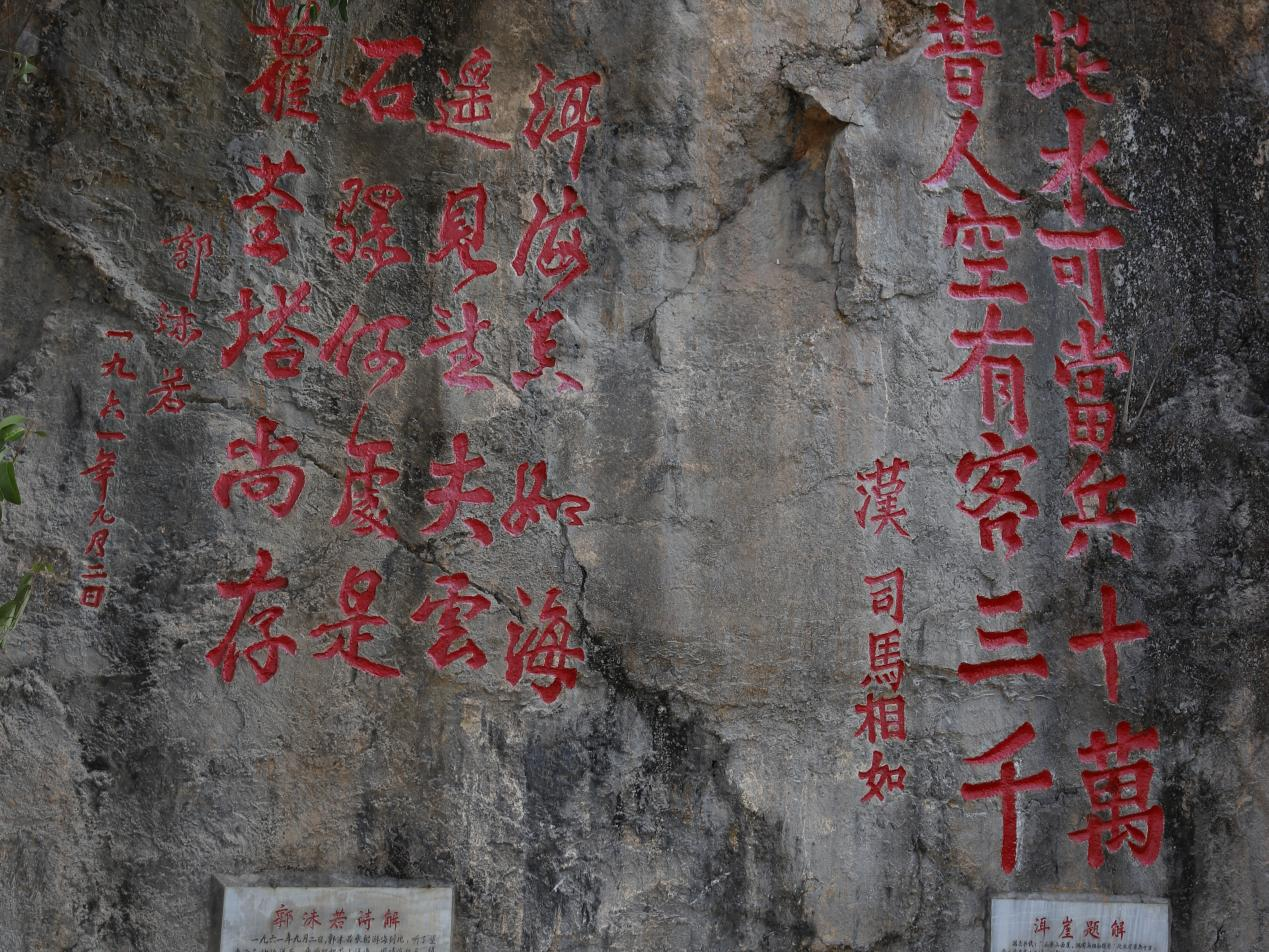 此水可當兵十萬
昔人空有客三千
漢 司馬相如
洱海真如海
遥見望夫雲
石騾何處是
蘿荃塔尚存
郭沫若
一九六一年九月二日
洱崖题解
郭沫若诗解
一九六一年九月二日,郭沫若乘船游海到此,听了望